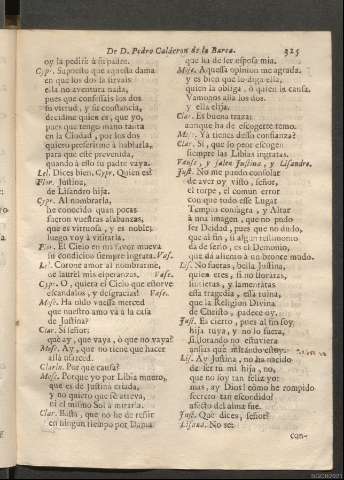 De D. Pedro Calderon de la Barca.
325
oy la pediré à su padre.
Cypr. Supuesto que aquesta dama
en que los dos la servais
ella no aventura nada,
pues que confessais los dos
su virtud, y su constancia,
decidme quien es, que yo,
pues que tengo mano tanta
en la Ciudad, por los dos
quiero preferirme à hablarla,
para que esté prevenida,
quando à esso su padre vaya.
Lel. Dices bien. Cypr. Quien es?
Flor. Justina,
de Lisandro hija.
Cypr. Al nombrarla,
he conocido quan pocas
fueron vuestras alabanzas,
que es virtuosa, y es noble;
luego voy à visitarla.
Flor. El Cielo en mi favor mueva
su condicion siempre ingrata. Vase.
Lel. Corone amor al nombrarme,
de laurel mis esperanzas. Vase.
Cypr. O, quiera el Cielo que estorve
escandalos, y desgracias! Vase.
Mosc. Ha oìdo vuessa merced
que nuestro amo và à la casa
de Justina?
Clar. Sì señor;
què ay, que vaya, ò que no vaya?
Mosc. Ay, que no tiene que hacer
allà usarced.
Clarin. Por què causa?
Mosc. Porque yo por Libia muero,
que es de Justina criada,
y no quiero que se atreva,
ni el mismo Sol à mirarla.
Clar. Basta, que no he de reñir
en ningun tiempo por Dama
que ha de ser esposa mia.
Mosc. Aquessa opinion me agrada,
y es bien que lo diga ella,
quien la obliga, ò quien la cansa.
Vamonos allà los dos,
y ella elija.
Clar. Es buena traza;
aunque ha de escogerte temo.
Mosc. Ya tenes desso confianza?
Clar. Sì, que lo peor escogen
siempre las Libias ingratas.
Vanse, y salen Justina, y Lisandro.
Just. No me puedo consolar
de aver oy visto, señor,
el torpe, el comun error
con que todo esse Lugar
Templo consagra, y Altar
à una imagen, que no pudo
ser Deidad, pues que no dudo,
que al fin, si algun testimonio
dà de serlo, es el Demonio,
que dà aliento à un bronce mudo.
Lis. No fueras, bella Justina,
quien eres, si no lloraras,
sintieras, y lamentàras
essa tragedia, essa ruina,
que la Religion Divina
de Christo, padece oy.
Just. Es cierto, pues al fin soy
hija tuya, y no lo fuera,
si llorando no estuviera
ansias que mirando estoy.
Lis. Ay Justina, no ha nacido
de ser tu mi hija, no,
que no soy tan feliz yo:
mas, ay Dios! còmo he rompido
secreto tan escondido?
afecto del alma fue.
Just. Què dices, señor?
Lisand. No sè:
con-